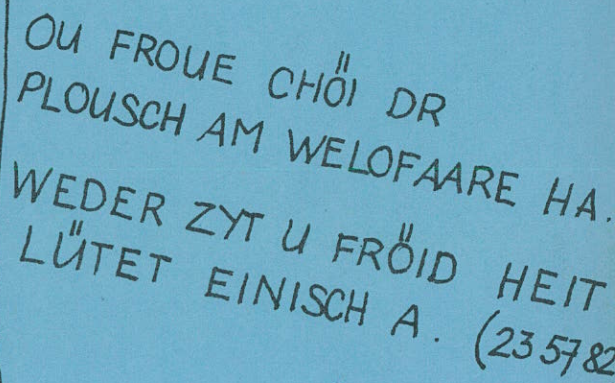 OU FROUE CHÖI DR
PLOUSCH AM WELOFAARE HA.
WEDER ZYT U FRÖID HEIT
LÜTET EINISCH A. (23 57 82